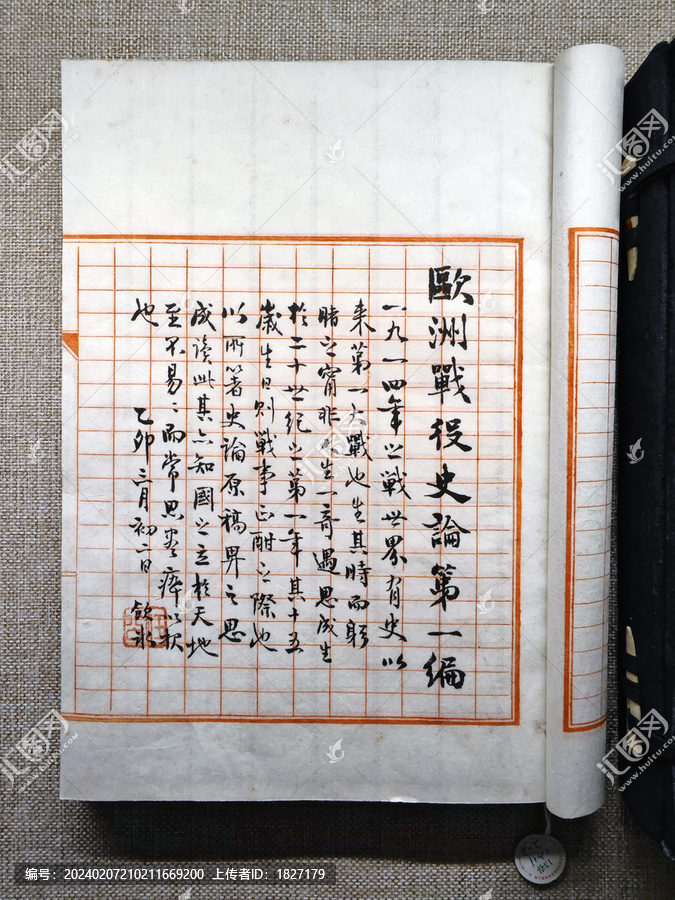 歐洲戰役史論第一編
一九一四年之戰世界有史以
來第一大戰也生其時而躬
睹之甯非人生一奇遇思成生
於二十世紀之第一年其十五
歲生日則戰事正酣之際也
以所著史論原稿畀之思
成讀此其亦知國之立於天地
至不易〻而常思盡瘁以報
也 乙卯三月初二日 飲冰
汇图网
www.huitu.com
编号：20240207210211669200 上传者ID：1827179